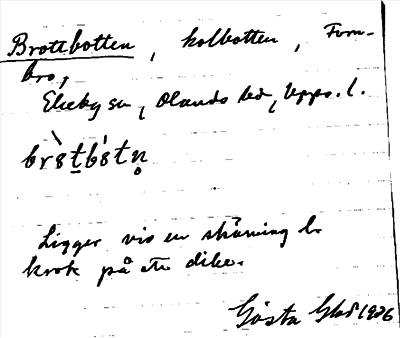 Brottbotten, kolbotten, Forn-
bro,
Ekeby sn, Olands hd, Upps. l.
brɵ̀tbɵ́tn̥
Ligger vid en skärning l.
krok på ett dike.
Gösta 1926